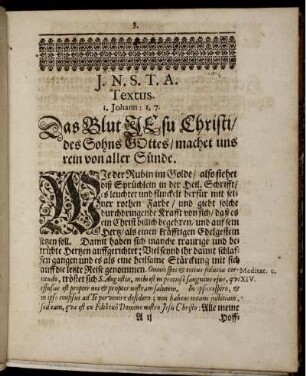 3.
J. N. S. T. A.
Textus.
1. Johann: 1, 7.
Das Blut JEsu Christi/
des Sohns GOttes/ machet uns
rein von aller Sünde.
WIe der Rubin im Golde/ also stehet
diß Sprüchlein in der Heil. Schrifft/
es leuchtet und funckelt herfür mit sei-
ner rothen Farbe/ und giebt solche
durchdringende Krafft von sich/ daß es
ein Christ billich begehren/ und auf sein
Hertz/ als einen kräfftigen Edelgestein
setzen soll. Damit haben sich manche traurige und be-
trübte Hertzen auffgerichtet; Viel seynd ihr damit schlaf-
fen gangen und es als eine heilsame Stärckung mit sich
auff die letzte Reise genommen. Omnis spes et totius fiducia cer-
titudo, tröstet sich Augustinus, mihi est in pretioso sanguine ejus, qvi
effusus est propter nos et propter nostram salutem. In ipso respiro, et
in ipso confisus ad Te pervenire desidero; non habens meam justitiam,
sed eam, qvæ est ex Filio tuo Domino nostro Jesu Christo: Alle meine
Meditat. c.
XIV.
A ij
Hoff-